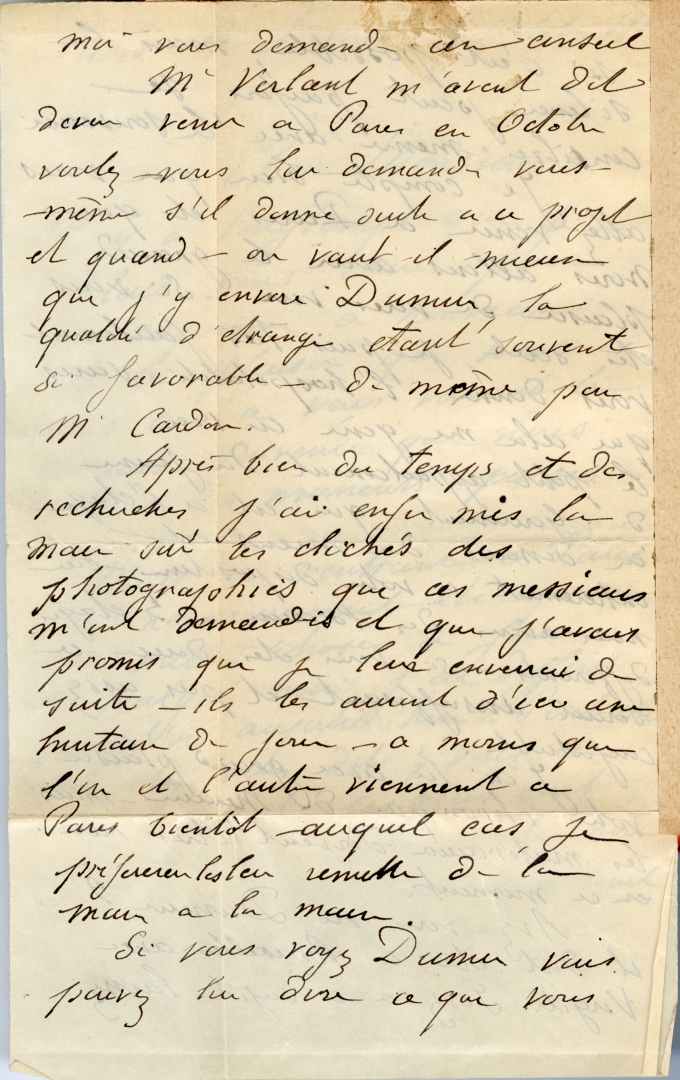 moi vous demande un conseil
Mr Verlant m'avait dit
devoir venir a Paris en Octobre
voulez-vous lui demander vous-
même s'il donne suite a ce projet
et quand - ou vaut il mieux
que j'y envoie Dumur, la
qualité d'etranger etant souvent
si favorable - de même pour
Mr Cardon.
Après bien du temps et des
recherches j'ai enfin mis la
main sur les clichés des
photographies que ces messieurs
m'ont demandés et que j'avais
promis que je leur enverrai de
suite - ils les auront d'ici une
huitaine de jours - a moins que
l'un et l'autre viennent a
Paris bientôt - auquel cas je
préfererai les leur remettre de la
main a la main.
Si vous voyez Dumur vous
pouvez lui dire ce que vous